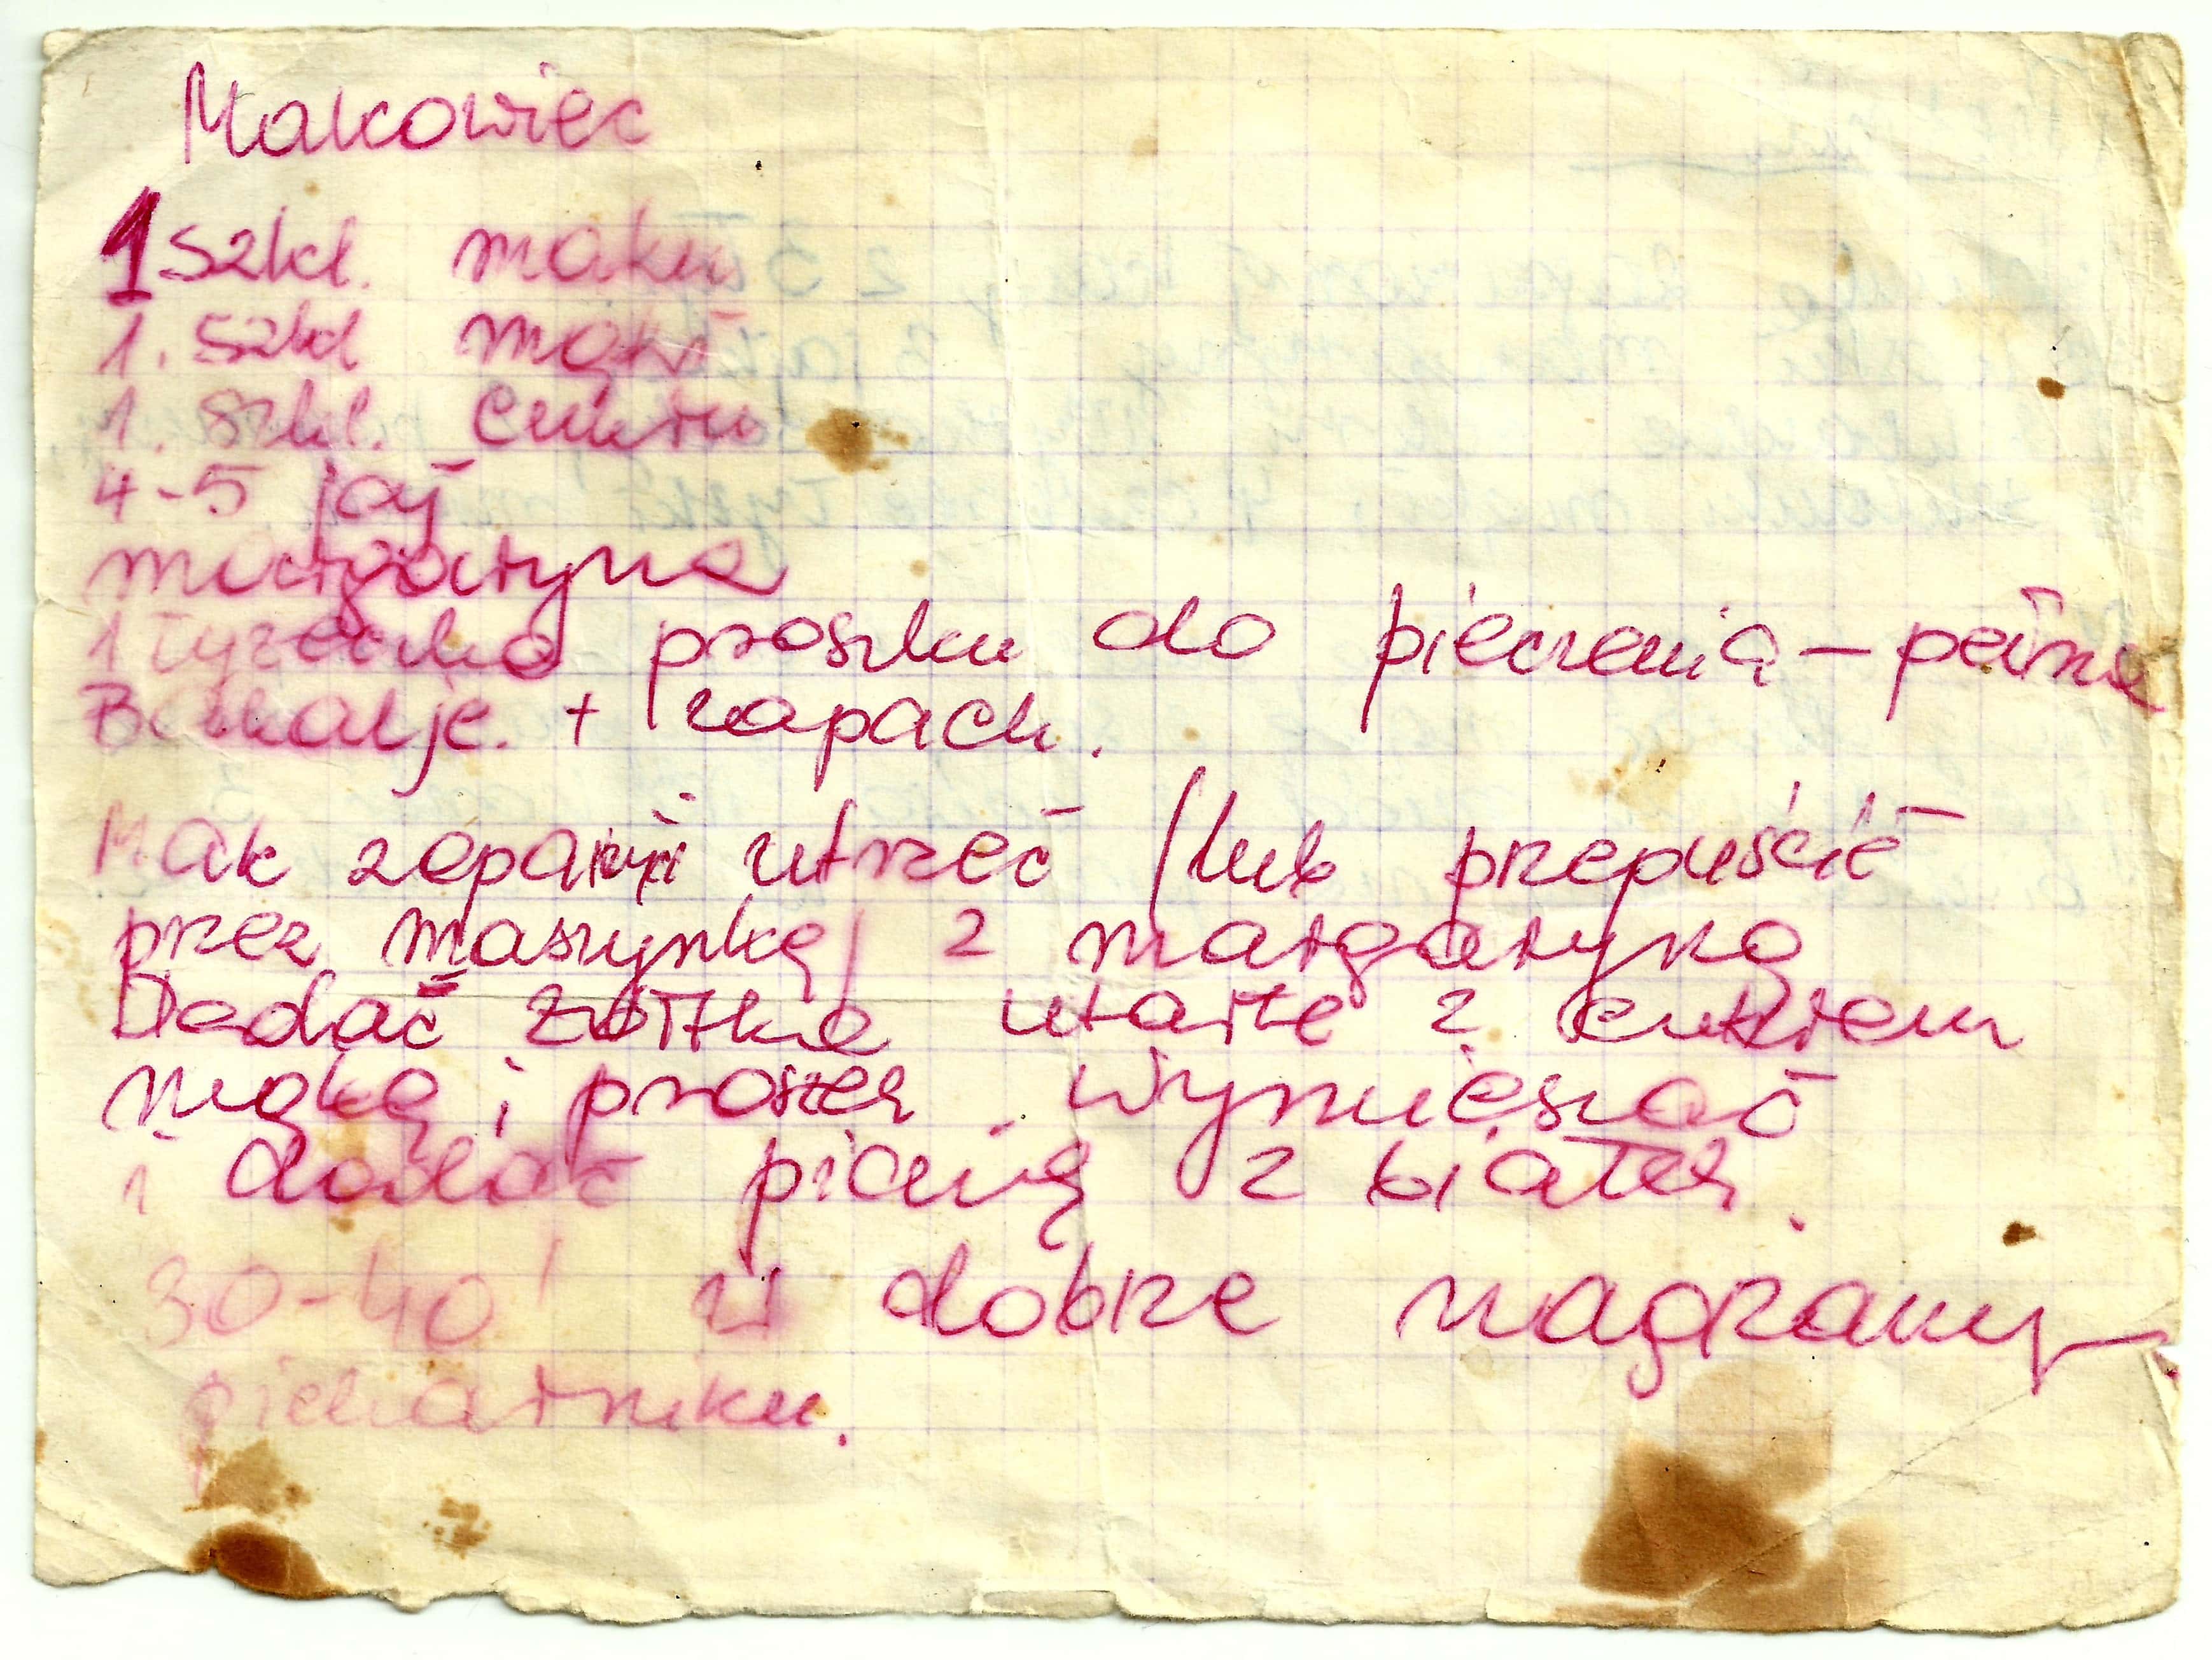 Makowiec
1 szkl. maku
1. szkl mąki
1. szkl. cukru
4-5 jaj
margaryna
1 łyżeczka proszku do pieczenia – pełna
Bakalje. + zapach.
Mak zaparzyć utrzeć /lub przepuścić
przez maszynkę/ z margaryną
Dodać żółtka utarte z cukrem
mąkę i proszek wymieszać
i dodać pianę z białek.
30-40' w dobrze nagrzanym
piekarniku.